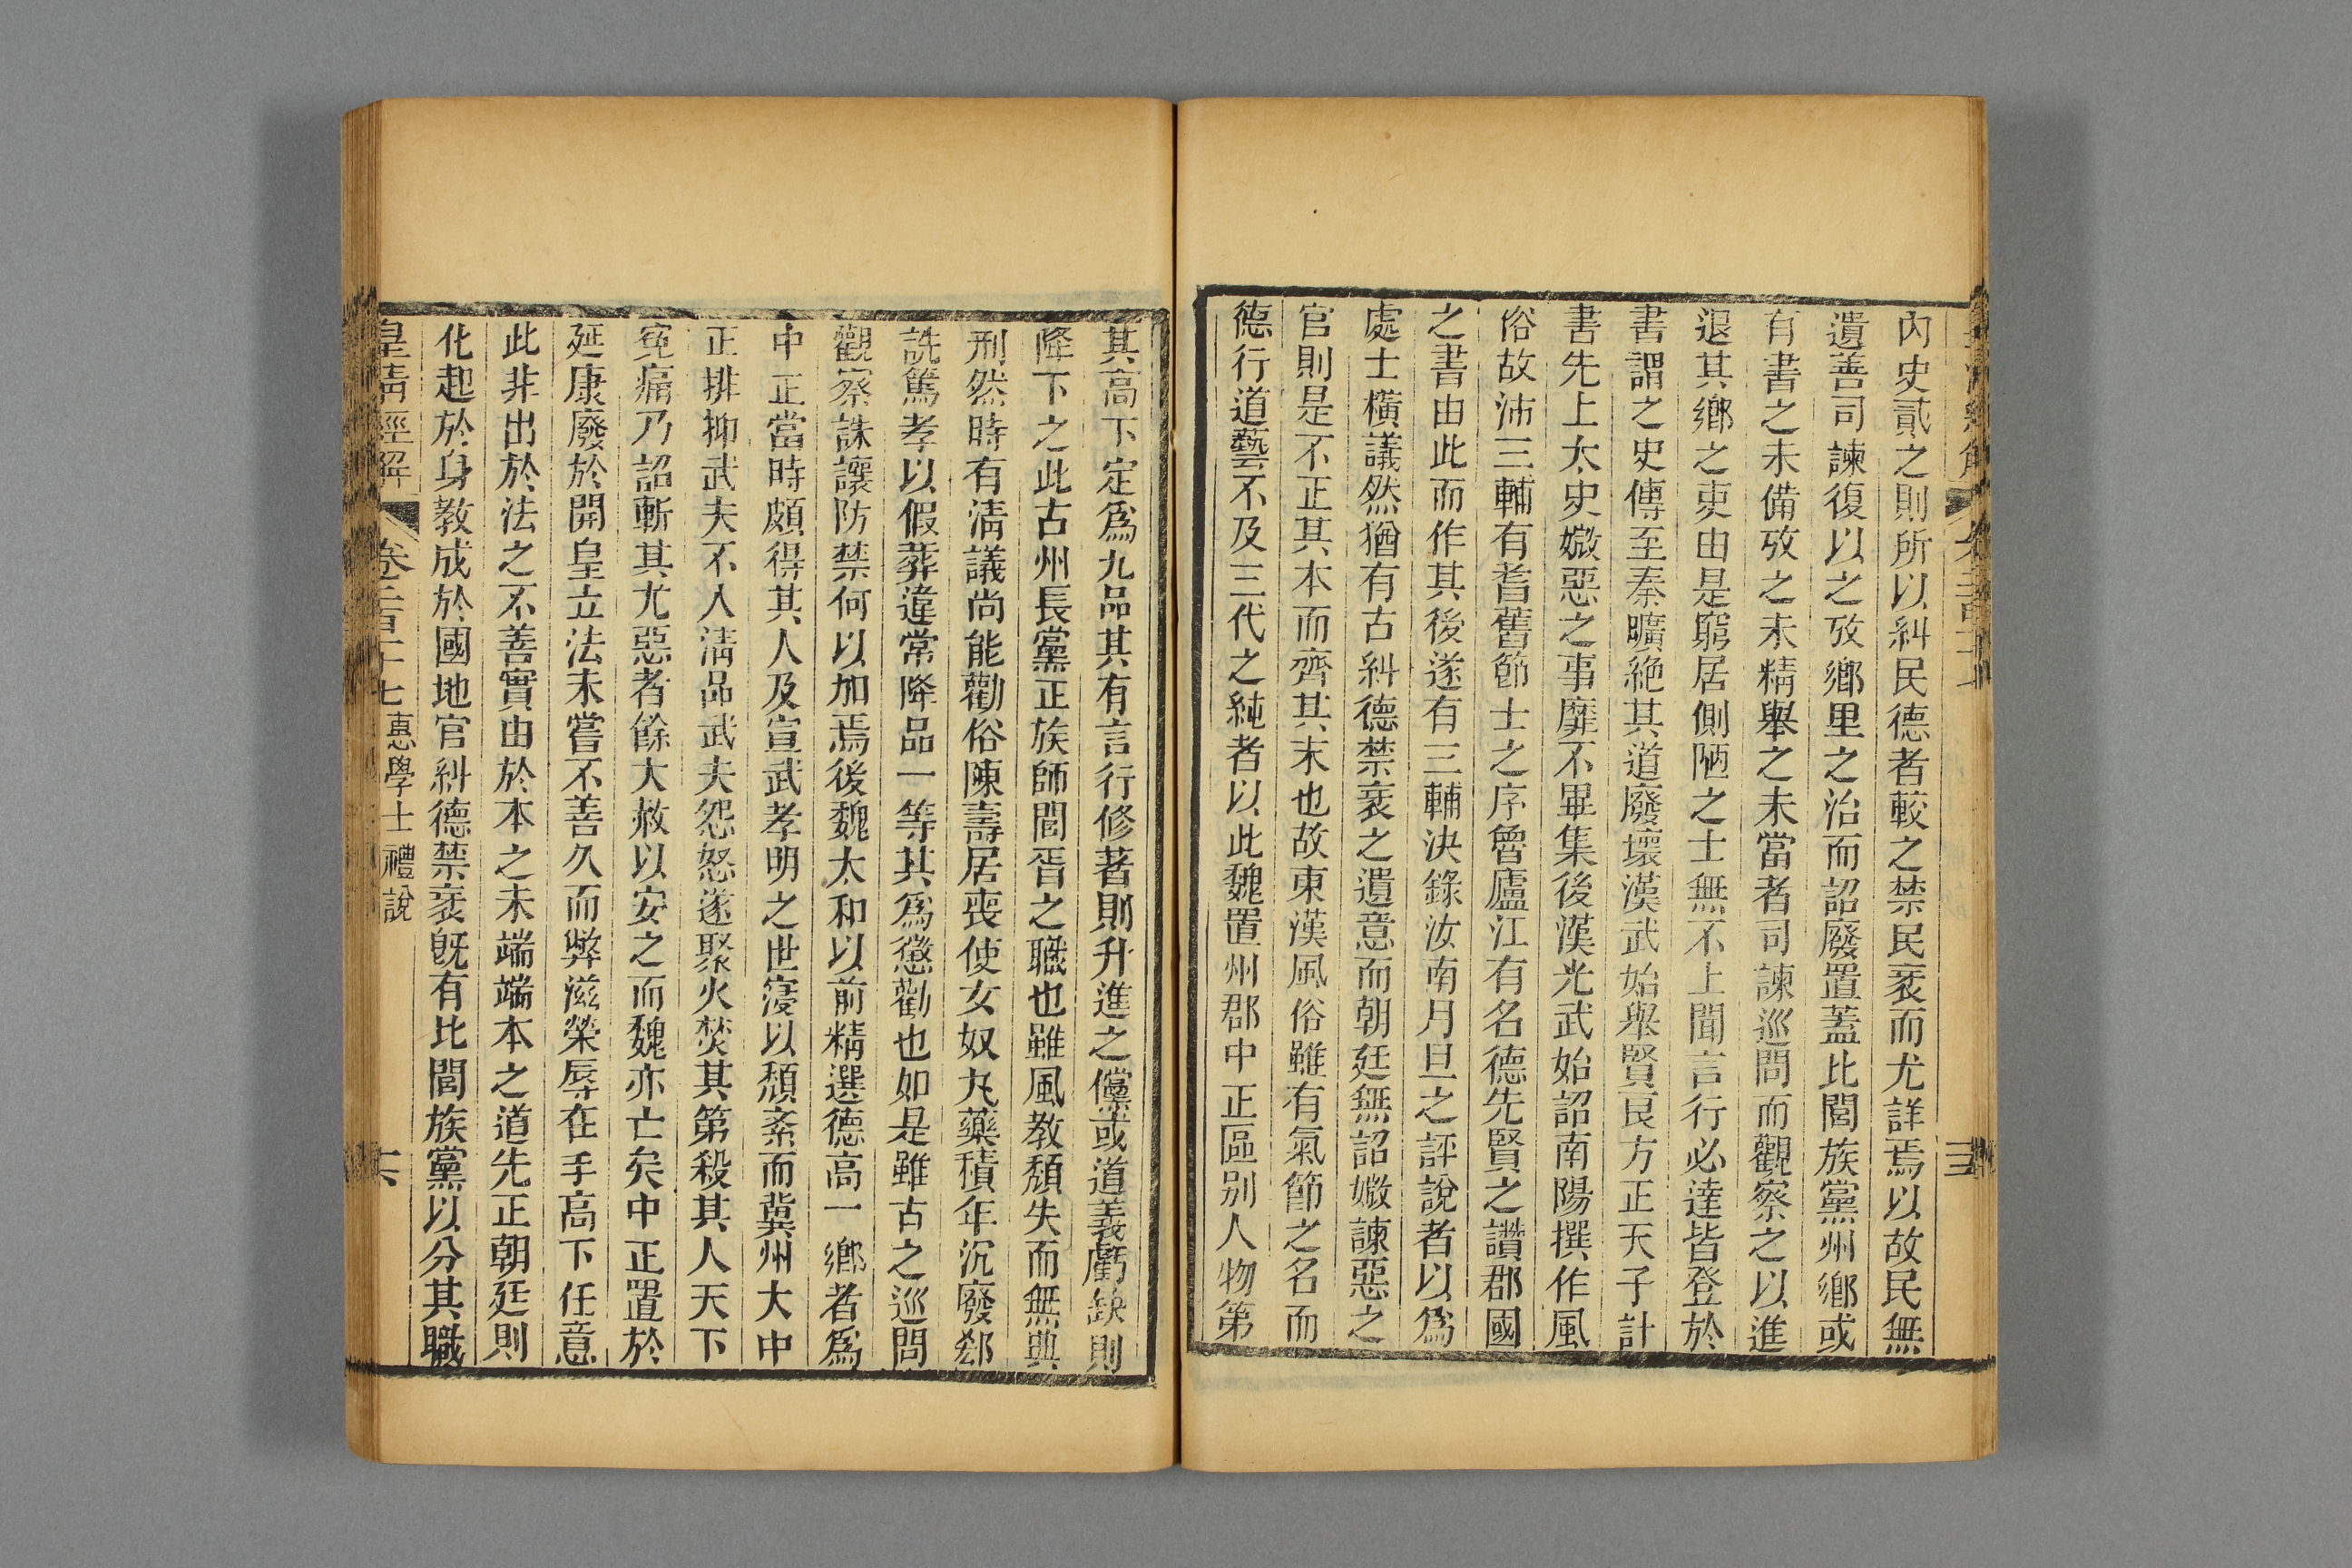 內史貳之則所以糾民德者較之禁民衺而尤詳焉以故民無
遺善司諫復以之攷鄉里之治而詔廢置蓋比閭族黨州鄉或
有書之未備攷之未精舉之未當者司諫巡問而觀察之以進
退其鄉之吏由是窮居側陋之士無不上聞言行必達皆登於
書謂之史傳至秦曠絶其道廢壞漢武始舉賢良方正天子計
書先上太史媺惡之事靡不畢集後漢光武始詔南陽撰作風
俗故沛三輔有耆舊節士之序魯廬江有名德先賢之讚郡國
之書由此而作其後遂有三輔決錄汝南月旦之評說者以爲
處士橫議然猶有古糾德禁衺之遺意而朝廷無詔媺諫惡之
官則是不正其本而齊其末也故東漢風俗雖有氣節之名而
德行道藝不及三代之純者以此魏置州郡中正區别人物第
其高下定爲九品其有言行修著則升進之儻或道義虧缺則
降下之此古州長黨正族師閭胥之職也雖風教頹失而無典
刑然時有淸議尚能勸俗陳壽居喪使女奴丸藥積年沉廢郄
詵篤孝以假葬違常降品一等其爲懲勸也如是雖古之巡問
觀察誅讓防禁何以加焉後魏太和以前精選德高一鄉者爲
中正當時頗得其人及宣武孝明之世寖以頹紊而冀州大中
正排抑武夫不入淸品武夫怨怒遂聚火焚其第殺其人天下
寃痛乃詔斬其尤惡者餘大赦以安之而魏亦亡矣中正置於
延康廢於開皇立法未嘗不善久而弊滋榮辱在手高下任意
此非出於法之不善實由於本之未端端本之道先正朝廷則
化起於身教成於國地官糾德禁衺旣有比閭族黨以分其職
皇淸經解 卷二百十七 惠學士禮說 六